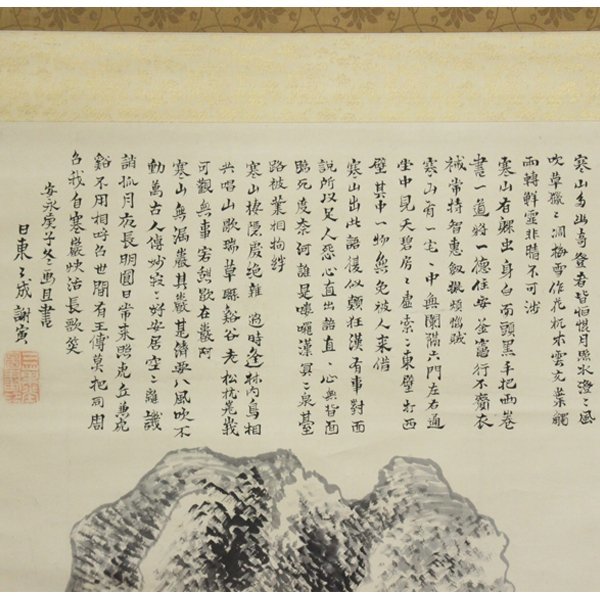 寒山多幽奇登者皆恒懾月照水澄々風
吹草獵々凋梅雪作花杌木雲充葉觸
雨轉鮮靈非晴不可涉
寒山有躶虫身白而頭黑手把兩卷
書一道將一德住無釜竈行不齎衣
裓常持智惠劒擬煩惱賊
寒山有一宅々中無闌隔六門左右通
堂中見天碧房々虛索々東壁打西
壁其中一物無免被人來借
寒山出此語復似顛狂漢有事對面
說所以足人怨心直出語直々心無背面
臨死度奈河誰是嘍囉漢冥々泉臺
路被業相拘絆
寒山棲隱處絶雜過時逢林內鳥相
共唱山歌瑞草聯谿谷老松枕嵯峨
可觀無事客憩歇在巖阿
寒山無漏巖其巖甚濟要八風吹不
動萬古人傳妙寂々好安居空々離譏
誚孤月夜長明圓日常來照虎丘兼虎
谿不用相呼召世間有王傅莫把同周
召我自寒巖快活長歌笑
安永庚子冬畫且書
日東々成謝寅